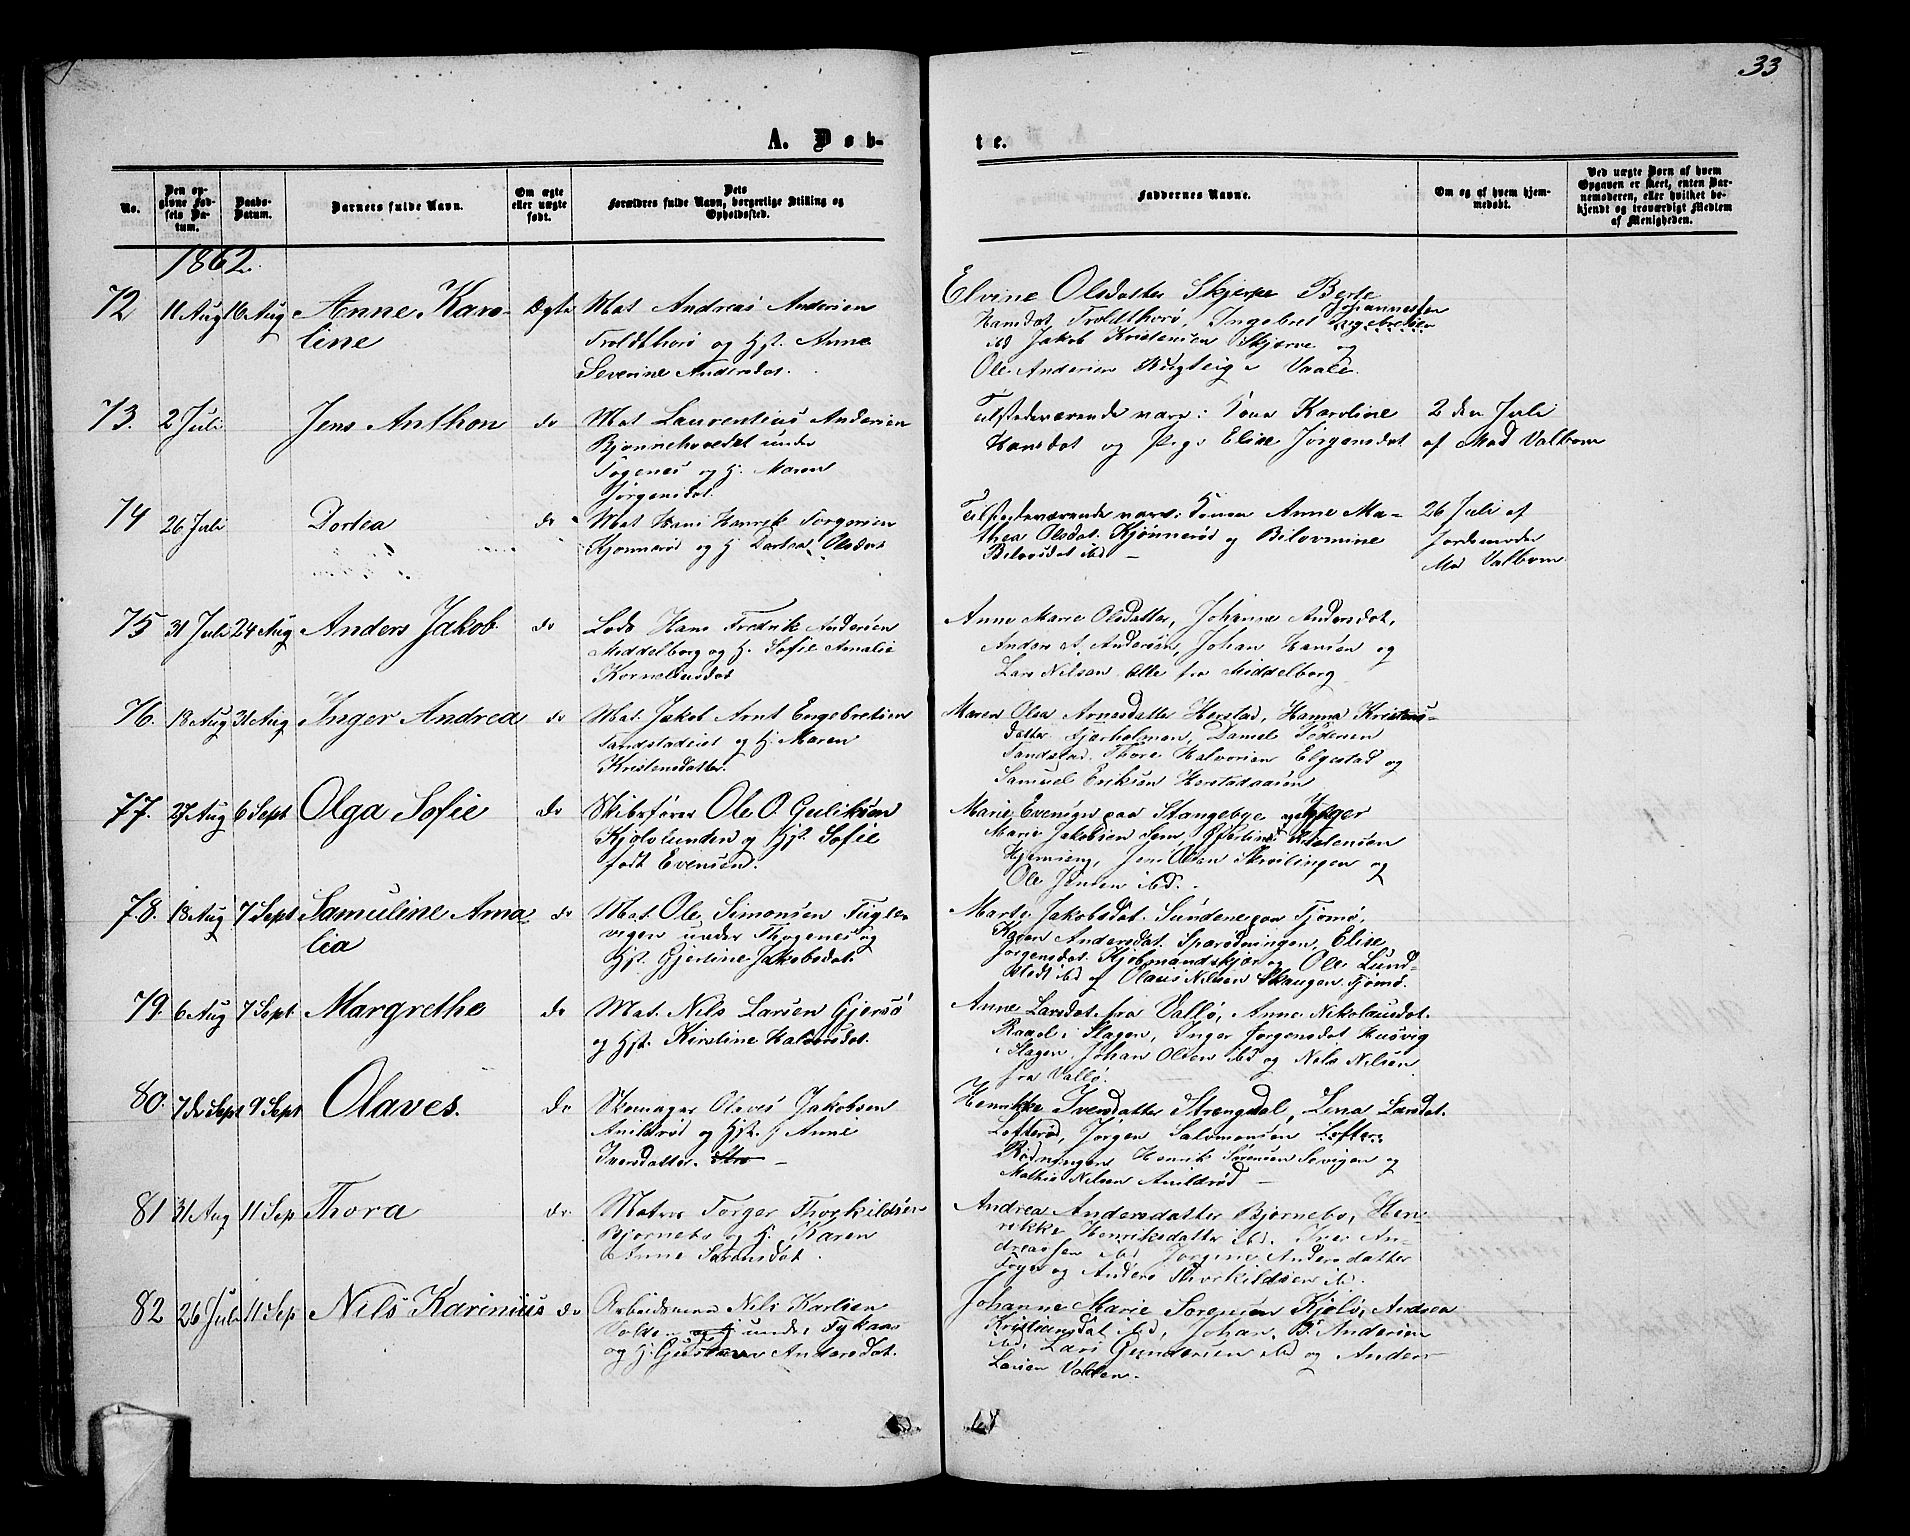 33
A. Døb-
te.
No.
Den op-
givne Fød-
sels Da-
tum.
Daabs-
Datum.
Barnets fulde Navn.
Om ægte
eller uægte
født.
Dets
Forældres fulde Navn, borgerlige Stilling og
Opholdssted.
Faddernes Navne.
Om og af hvem hjem-
medøbt.
Ved uægte Børn af hvem
Opgaven er skeet, enten Bar-
nemoderen, eller hvilket be-
kjendt og troværdigt Medlem
af Menigheden.
1862.
72 11 Aug 16 Aug Anne Karo-
line
Ægte
Mat Andreas Andersen
Troldthorø og Hst. Anne
Severine Andersdat.
Elvine Olsdatter Skjerpe Berte
Hansdat Troldthorø, Ingebret Johannessen
ibd Jakob Kristensen Skjerve og
Ole Andersen i Vaale.
73. 2 Juli Jens Anthon do
Mat Laurentius Andersen
Bjønnehovedet under
Tøgenes og H. Maren
Jørgensdat.
Tilstedeværende vare: Kona Karoline
Hansdat og Pige Elise Jørgensdat
2 den Juli
af Mad Valbom
74 26 Juli Dortea do
Mat Hans Henrik Torgersen
Kjønnerød og H Dortea Olsdat
Tilstedeværende vare: Konen Anne Ma-
thea Olsdat. Kjønnerød og Bilovmine
ibd –
26 Juli af
Jordemoder
Md Valbom
75 31 Juli 24 Aug Anders Jakob. do
Lods Hans Fredrik Andersen
Middelborg og H. Sofie Amalie
Kornelius dat
Anne Marie Olsdatter, Johanne Andersdat,
Anders A. Andersen, Johan Hansen og
Lars Nilsen alle fra Middelborg
76. 18 Aug 31 Aug Inger Andrea do
Mat. Jakob Arnt Engebretsen
Sandstadeiet og H. Maren
Kristensdatter.
Maren Olea Arnesdatter Herstad, Hanna Kristens-
datter Fjærholmen, Daniel Pedersen
Sandstad, Thore Halvorsen Elgestad og
Samuel Eriksen Herstadaasen
77. 27 Aug 6 Sept Olga Sofie do
Skibsfører Ole O. Guliksen
Kjølslunden og Hst. Sofie
født Evensen.
Marie Evensen paa Stangebye og Inger
Marie Jakobsen Sem, Gjertine Kristensen
Hjemseng, Jens Olsen Skvilingen og
Ole Jensen ibd.
78. 18 Aug 7 Sept Samuline Ama
lia
do
Mat. Ole Simonsen Fugle
vigen under Thøgenes og
Hst. Gjertine Jakobsdat.
Marte Jakobsdat. Sundene paa Tjømø,
Karen Andersdat. Sparødningen, Elise
Jørgensdat. Kjøbmandskjær og Ole Lund-
stedt ibd af Olaus Nilsen Skaugen Tjømø.
79. 6 Aug 7 Sept. Margrethe do
Mat. Nils Larsen Gjersø
og Hst. Kirstine Halvorsdat.
Anne Larsdat. fra Vallø, Anne Nikolausdat.
Raael i Slagen, Inger Jørgensdat Husvig
i Slagen, Johan Olsen ibd og Nils Nilsen
fra Vallø.
80. 7 de Sept 9 Sept Olaves. do
Skomager Olaves Jakobsen
Anildrød og Hst. Anne
Iversdatter. –
Henrikke Iversdatter Strengsdal, Lina Larsdat.
Lofterød, Jørgen Salomonsen Lofte-
Rødningen Henrik Sørensen Sevigen og
Mathis Nilsen Anildrød –
81 31 Aug 11 Sep Thora do.
Matros Torger Thorkildsen
Bjørnebo og H. Karen
Anne Sørensdat.
Andrea Andersdatter Bjørnebo, Hen-
rikke Henriksdatter ibd. Iver An-
dreassen ibd Jørgine Andersdatter
Foyn og Anders Thorkildsen ibd.
82 26 Juli 11 Sep Nils Karinius do
Arbeidsmand Nils Karlsen
Volde under Fykaas
og H. Gustava Andersdat.
Johanne Marie Sørensen Kjølø, Andrea
Kristiansdat ibd, Johan B. Andersen
ibd, Lars Gundersen ibd og Anders
Larsen Valden.